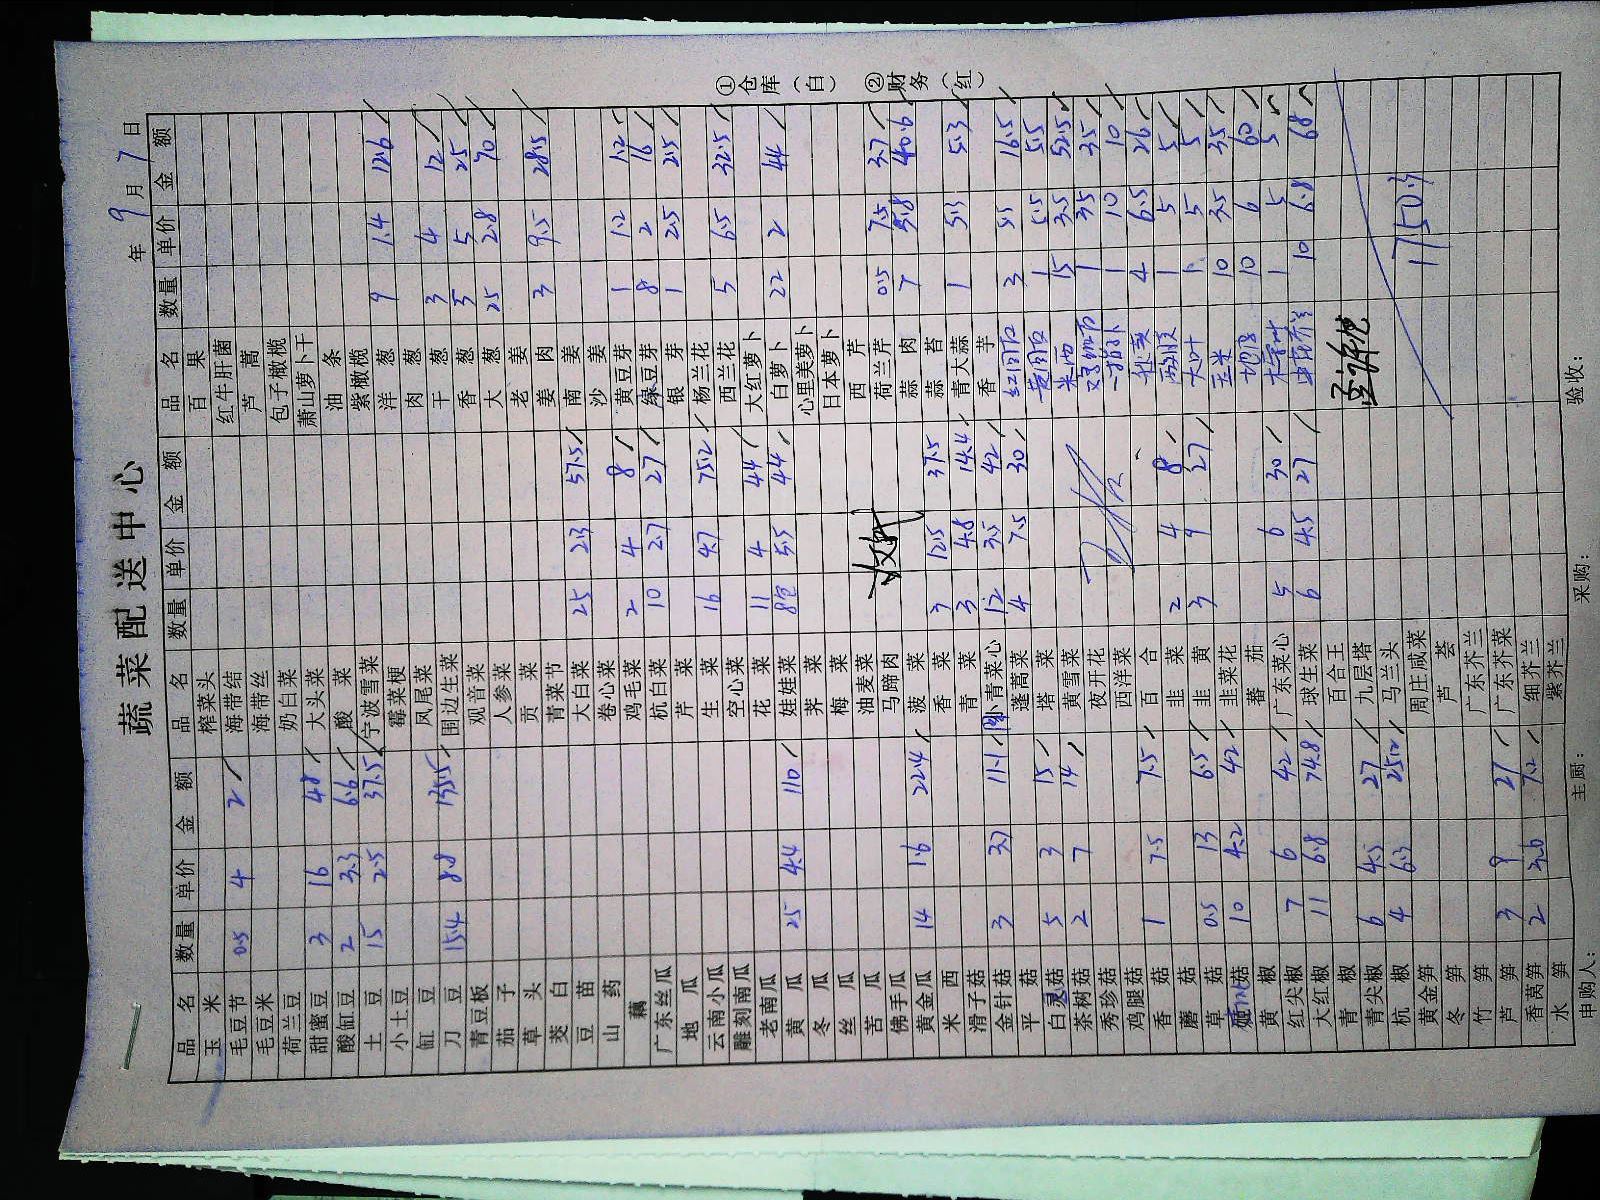 蔬菜配送中心
年 9 月 7 日
品名 数量 单价 金额 品名 数量 单价 金额 品名 数量 单价 金额
玉米 榨菜头 百果
毛豆节 0.5 4 2 海带结 红牛肝菌
毛豆米 海带丝 芦蒿
荷兰豆 奶白菜 包子橄榄
甜蜜豆 3 16 48 大头菜 萧山萝卜干
酸缸豆 2 3.3 6.6 酸菜 油条
土豆 15 2.5 37.5 宁波雪菜 紫橄榄
小土豆 霉菜梗 洋葱 9 1.4 12.6
缸豆 凤尾菜 肉葱
刀豆 15.4 8.8 135.5 围边生菜 干葱 3 4 12
青豆板 观音菜 香葱 5 5 25
茄子 人参菜 大葱 25 2.8 70
草头 贡菜 老姜
茭白 青菜节 姜肉 3 9.5 28.5
豆苗 大白菜 25 2.3 57.5 南姜
山药 卷心菜 沙姜
藕 鸡毛菜 2 4 8 黄豆芽 1 1.2 1.2
广东丝瓜 杭白菜 10 2.7 27 绿豆芽 8 2 16
地瓜 芹菜 银芽 1 2.5 2.5
云南小瓜 生菜 16 4.7 75.2 杨兰花
雕刻南瓜 空心菜 西兰花 5 6.5 32.5
老南瓜 花菜 11 4 44 大红萝卜
黄瓜 25 4.4 110 娃娃菜 8包 5.5 44 白萝卜 22 2 44
冬瓜 荠菜 心里美萝卜
丝瓜 梅菜 日本萝卜
苦瓜 油麦菜 西芹
佛手瓜 马蹄肉 荷兰芹 0.5 7.5 3.7
黄金瓜 14 1.6 22.4 菠菜 蒜肉 7 5.8 40.6
米西 香菜 3 12.5 37.5 蒜苔
滑子菇 青菜 3 4.8 14.4 青大蒜 1 5.3 5.3
金针菇 3 3.7 11.1 小青菜心 12 3.5 42 香芋
平菇 蓬蒿菜 4 7.5 30 红圆 3 5.5 16.5
白灵菇 5 3 15 塔菜 黄圆 1 5.5 5.5
茶树菇 2 7 14 黄雪菜 米 15 3.5 52.5
秀珍菇 夜开花 1 35 35
鸡腿菇 西洋菜 1 10 10
香菇 1 7.5 7.5 百合 4 6.5 26
蘑菇 韭菜 2 4 8 1 5 5
草菇 0.5 13 6.5 韭黄 3 9 27 大叶 1 5 5
菇 10 4.2 42 韭菜花 玉米 10 3.5 35
黄椒 蕃茄 10 6 60
红尖椒 7 6 42 广东菜心 5 6 30 1 5 5
大红椒 11 6.8 74.8 球生菜 6 4.5 27 10 6.8 68
青椒 百合王
青尖椒 6 4.5 27 九层塔
杭椒 4 6.3 25.2 马兰头
黄金笋 周庄咸菜 1750.3
冬笋 芦荟
竹笋 广东芥兰
芦笋 3 9 27 广东芥菜
香莴笋 2 3.0 7.2 细芥兰
水笋 紫芥兰
申购人： 主厨： 采购： 验收：
①仓库（白） ②财务（红）